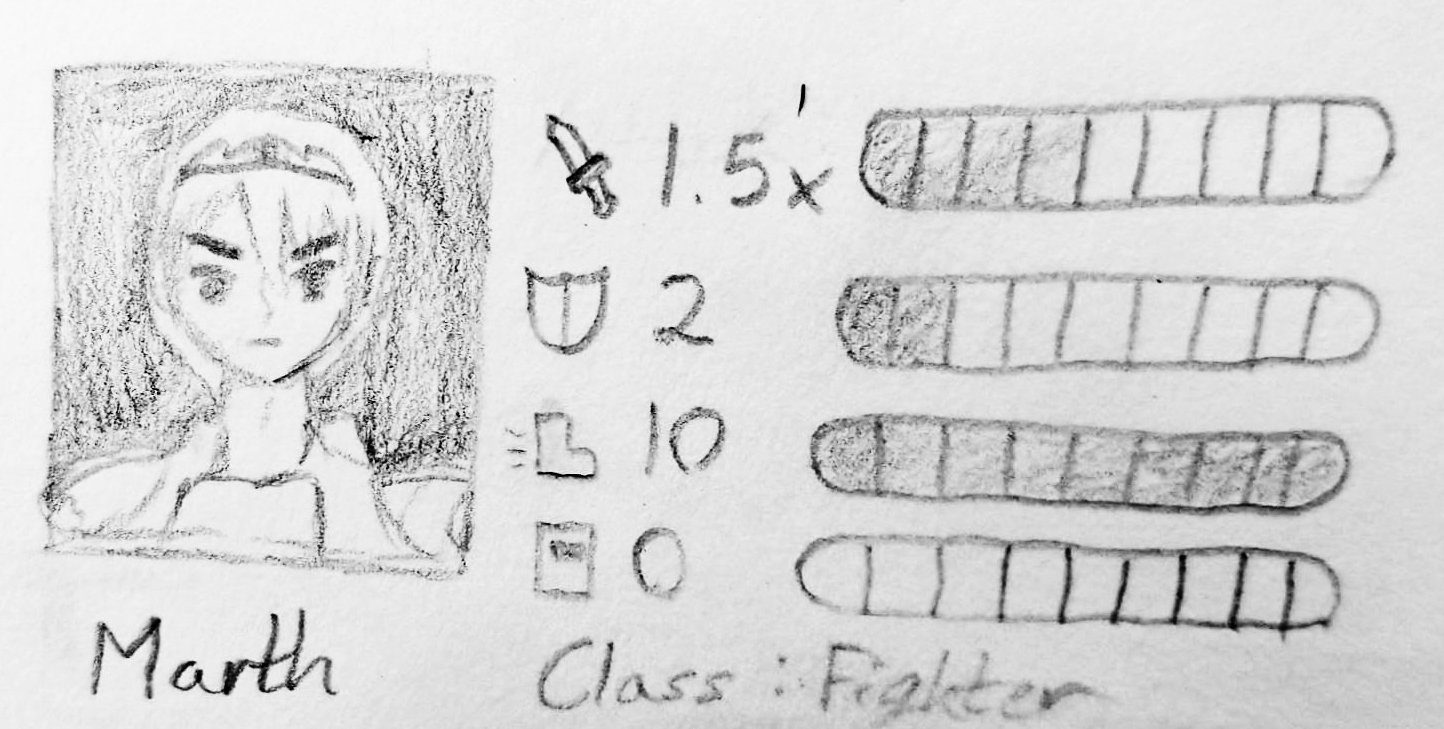 1.5x
2
10
0
Marth
Class: Fighter